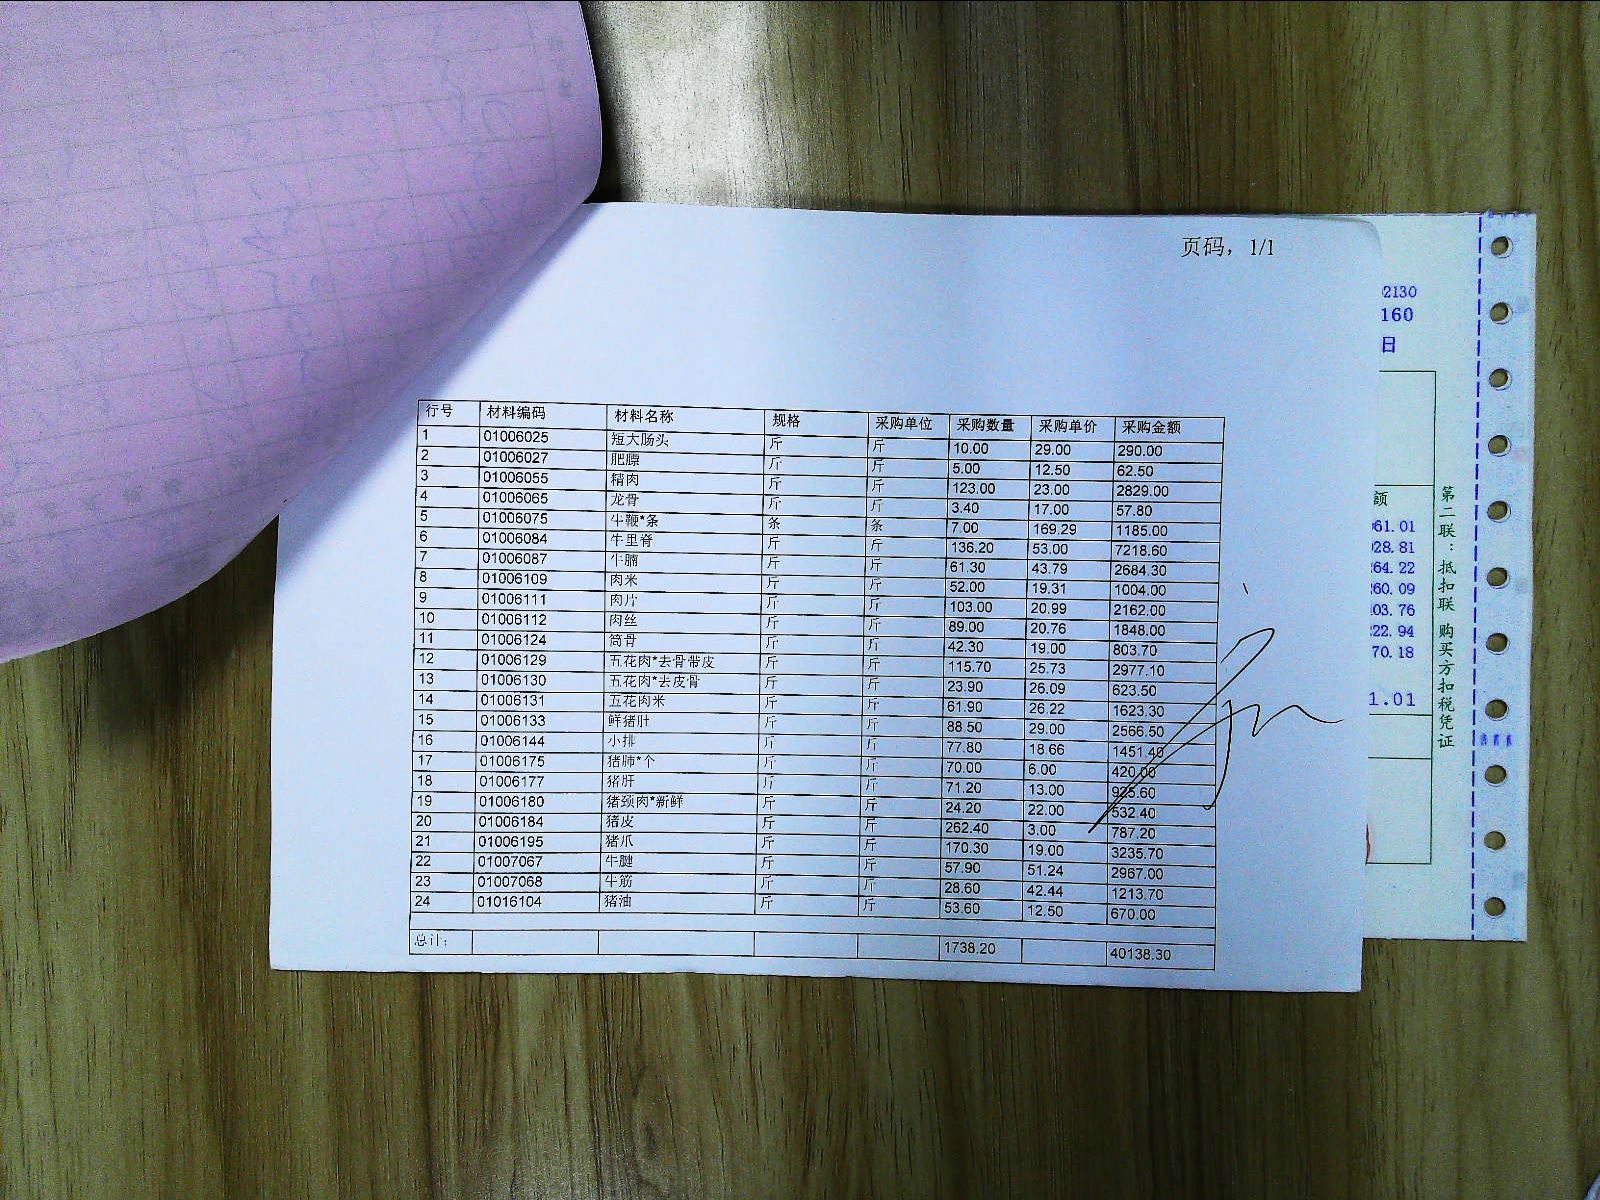 页码，1/1
行号 材料编码 材料名称 规格 采购单位 采购数量 采购单价 采购金额
1 01006025 短大肠头 斤 斤 10.00 29.00 290.00
2 01006027 肥膘 斤 斤 5.00 12.50 62.50
3 01006055 精肉 斤 斤 123.00 23.00 2829.00
4 01006065 龙骨 斤 斤 3.40 17.00 57.80
5 01006075 牛鞭*条 条 条 7.00 169.29 1185.00
6 01006084 牛里脊 斤 斤 136.20 53.00 7218.60
7 01006087 牛腩 斤 斤 61.30 43.79 2684.30
8 01006109 肉米 斤 斤 52.00 19.31 1004.00
9 01006111 肉片 斤 斤 103.00 20.99 2162.00
10 01006112 肉丝 斤 斤 89.00 20.76 1848.00
11 01006124 筒骨 斤 斤 42.30 19.00 803.70
12 01006129 五花肉*去骨带皮 斤 斤 115.70 25.73 2977.10
13 01006130 五花肉*去皮骨 斤 斤 23.90 26.09 623.50
14 01006131 五花肉米 斤 斤 61.90 26.22 1623.30
15 01006133 鲜猪肚 斤 斤 88.50 29.00 2566.50
16 01006144 小排 斤 斤 77.80 18.66 1451.40
17 01006175 猪肺*个 斤 斤 70.00 6.00 420.00
18 01006177 猪肝 斤 斤 71.20 13.00 925.60
19 01006180 猪颈肉*新鲜 斤 斤 24.20 22.00 532.40
20 01006184 猪皮 斤 斤 262.40 3.00 787.20
21 01006195 猪爪 斤 斤 170.30 19.00 3235.70
22 01007067 牛腱 斤 斤 57.90 51.24 2967.00
23 01007068 牛筋 斤 斤 28.60 42.44 1213.70
24 01016104 猪油 斤 斤 53.60 12.50 670.00
总计： 1738.20 40138.30
02130
160
日
额
961.01
928.81
264.22
260.09
403.76
22.94
70.18
1.01
第二联：抵扣联 购买方扣税凭证